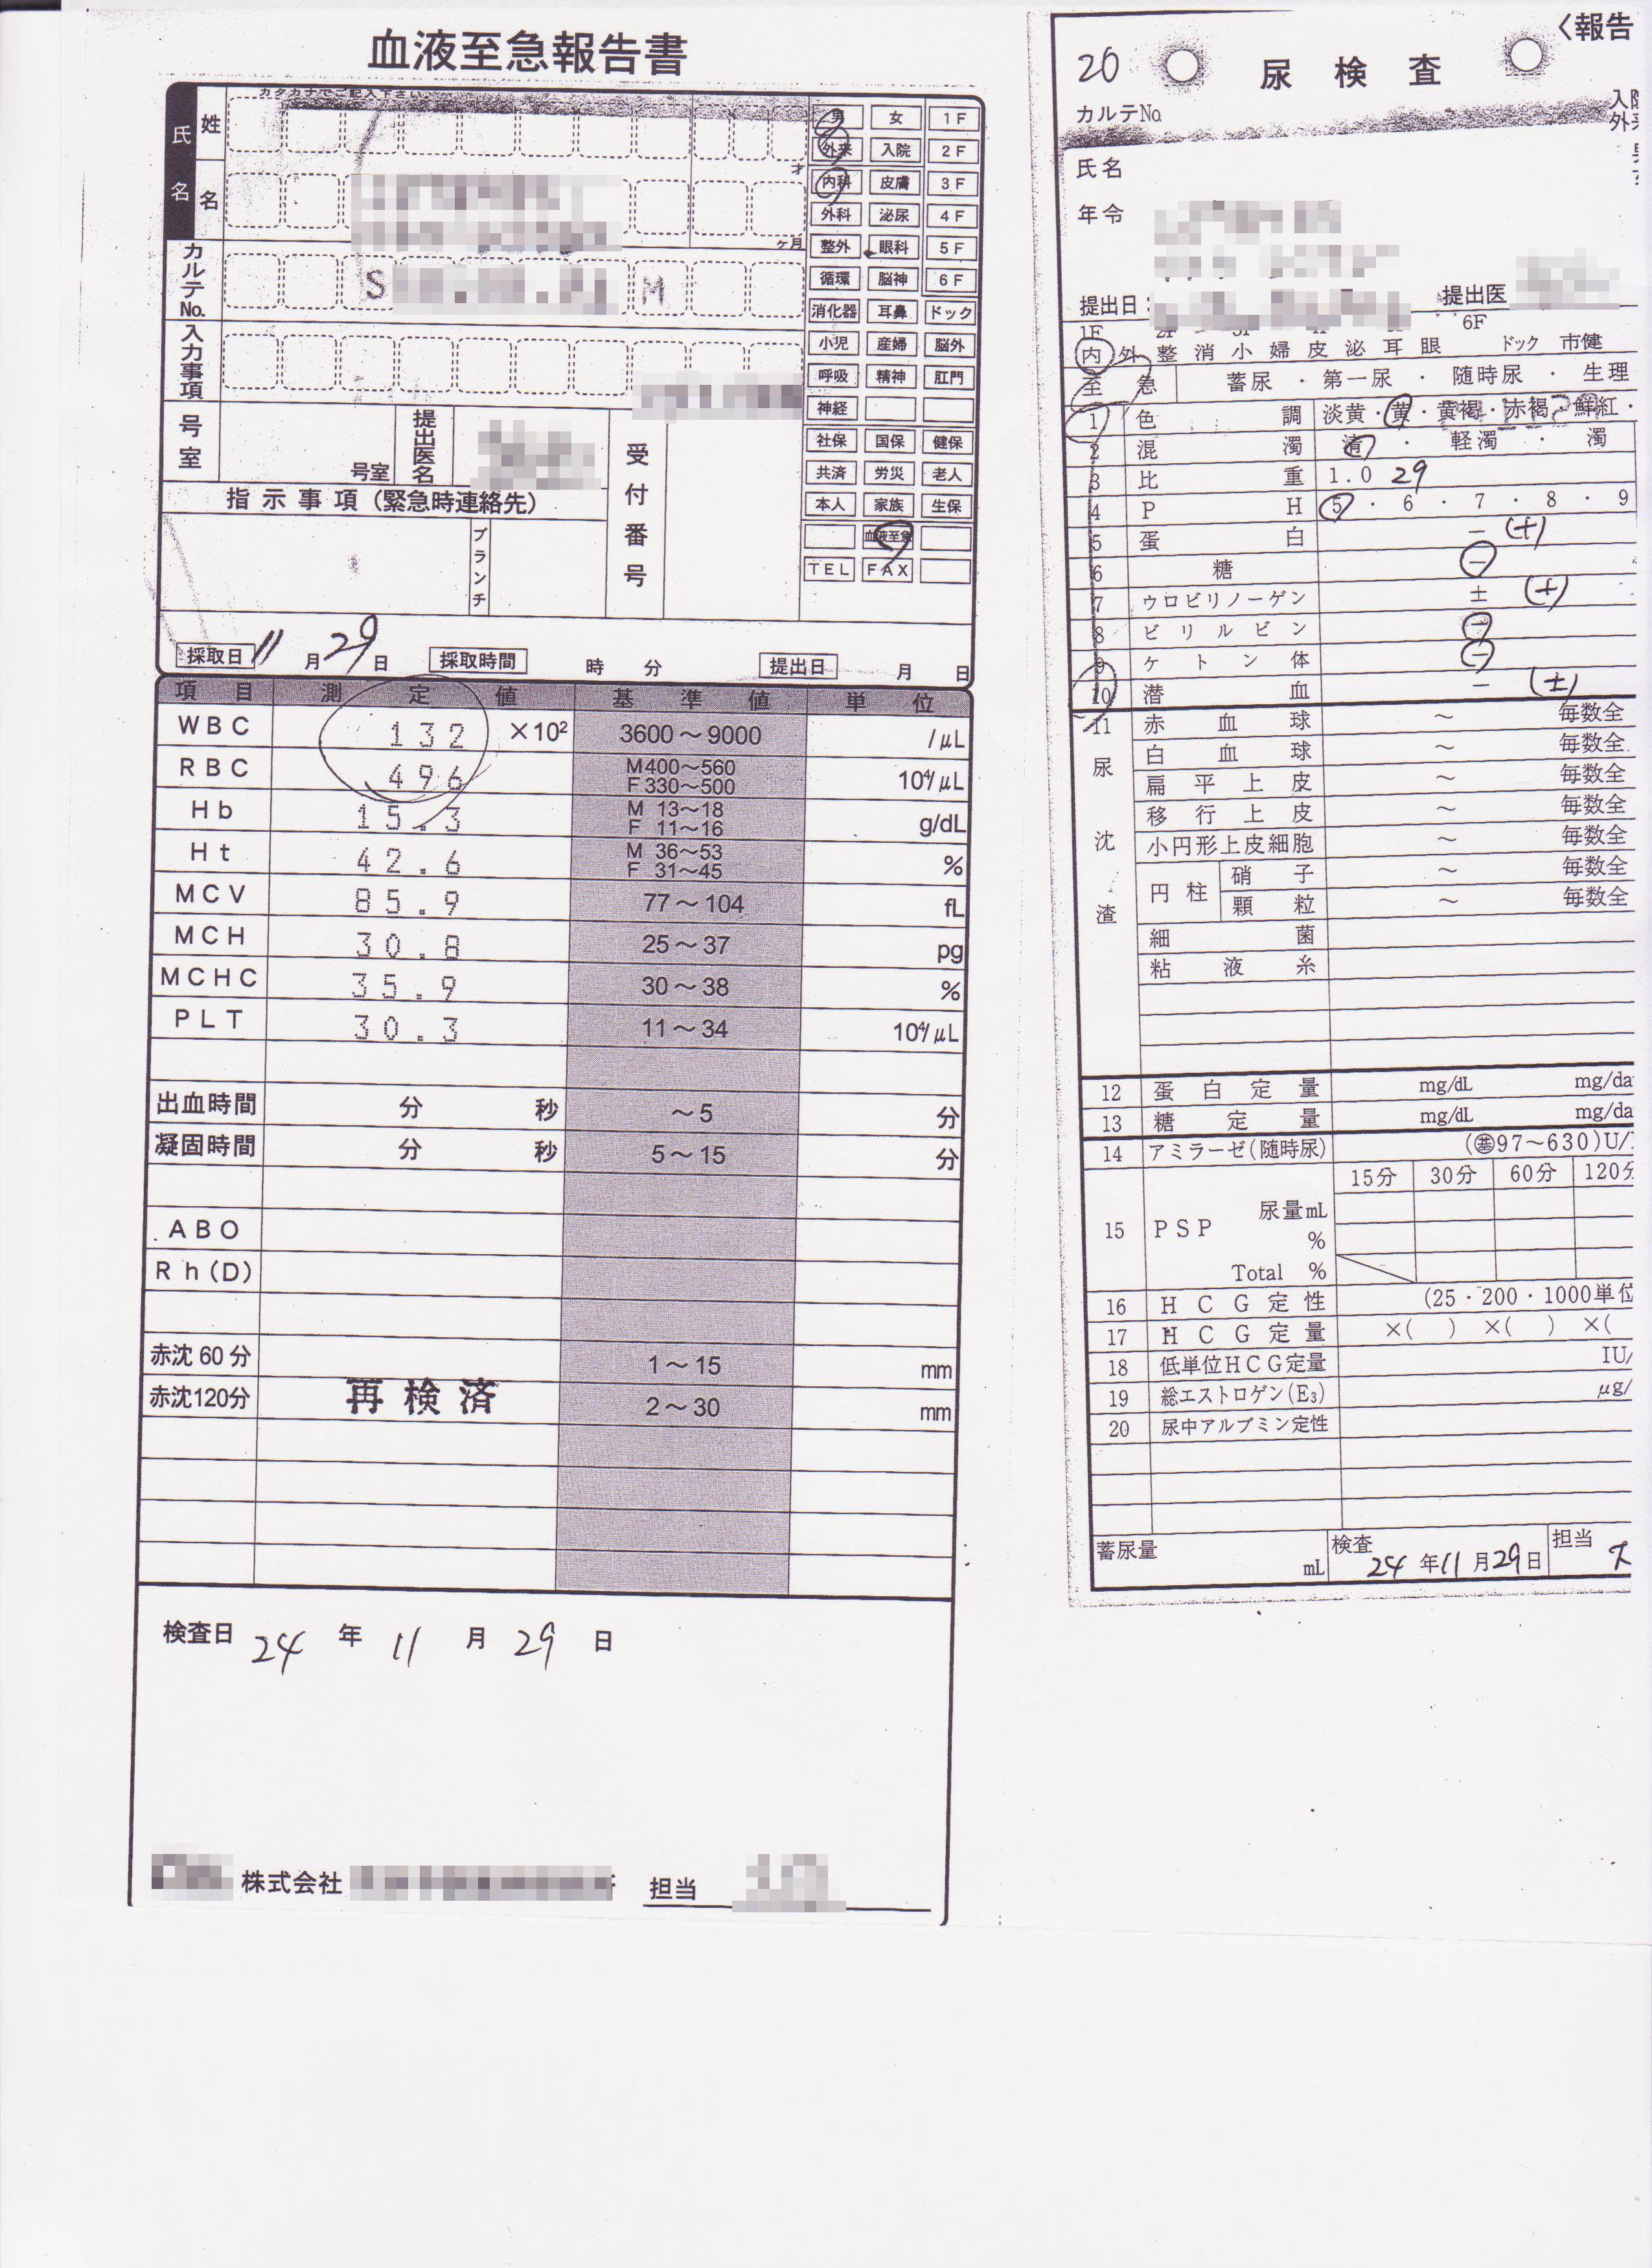 血液至急報告書
カタカナでご記入下さい
氏名
姓
才
名
ヶ月
カルテNo.
S M
入力事項
号室
号室
提出医名
受付番号
指示事項(緊急時連絡先)
ブランチ
男 女 1F
外来 入院 2F
内科 皮膚 3F
外科 泌尿 4F
整外 眼科 5F
循環 脳神 6F
消化器 耳鼻 ドック
小児 産婦 脳外
呼吸 精神 肛門
神経
社保 国保 健保
共済 労災 老人
本人 家族 生保
血液至急
TEL FAX
採取日 11月29日 採取時間 時 分 提出日 月 日
項目 測定値 基準値 単位
WBC 132 ×10² 3600～9000 /μL
RBC 496 M400～560 F330～500 10⁴/μL
Hb 15.3 M 13～18 F 11～16 g/dL
Ht 42.6 M 36～53 F 31～45 %
MCV 85.9 77～104 fL
MCH 30.8 25～37 pg
MCHC 35.9 30～38 %
PLT 30.3 11～34 10⁴/μL
出血時間 分 秒 ～5 分
凝固時間 分 秒 5～15 分
ABO
Rh(D)
赤沈60分 1～15 mm
赤沈120分 再検済 2～30 mm
検査日 24年11月29日
株式会社 担当
〈報告
20 尿検査
カルテNo.
入院
外来
氏名
年令
提出日: 提出医
1F 6F
内 外 整 消 小 婦 皮 泌 耳 眼 ドック 市健
至急 蓄尿・第一尿・随時尿・生理
1 色調 淡黄・黄・黄褐・赤褐・鮮紅・
2 混濁 清・軽濁・濁
3 比重 1.029
4 PH 5・6・7・8・9
5 蛋白 － (+)
6 糖 －
7 ウロビリノーゲン ± (+)
8 ビリルビン －
9 ケトン体 －
10 潜血 － (±)
11 尿沈渣
赤血球 ～ 毎数全
白血球 ～ 毎数全
扁平上皮 ～ 毎数全
移行上皮 ～ 毎数全
小円形上皮細胞 ～ 毎数全
円柱 硝子 ～ 毎数全
顆粒 ～ 毎数全
細菌
粘液糸
12 蛋白定量 mg/dL mg/da
13 糖定量 mg/dL mg/da
14 アミラーゼ(随時尿) (基97～630)U/
15分 30分 60分 120分
15 PSP 尿量mL
%
Total %
16 HCG定性 (25・200・1000単位
17 HCG定量 ×( ) ×( ) ×(
18 低単位HCG定量 IU/
19 総エストロゲン(E₃) μg/
20 尿中アルブミン定性
蓄尿量 mL 検査 24年11月29日 担当